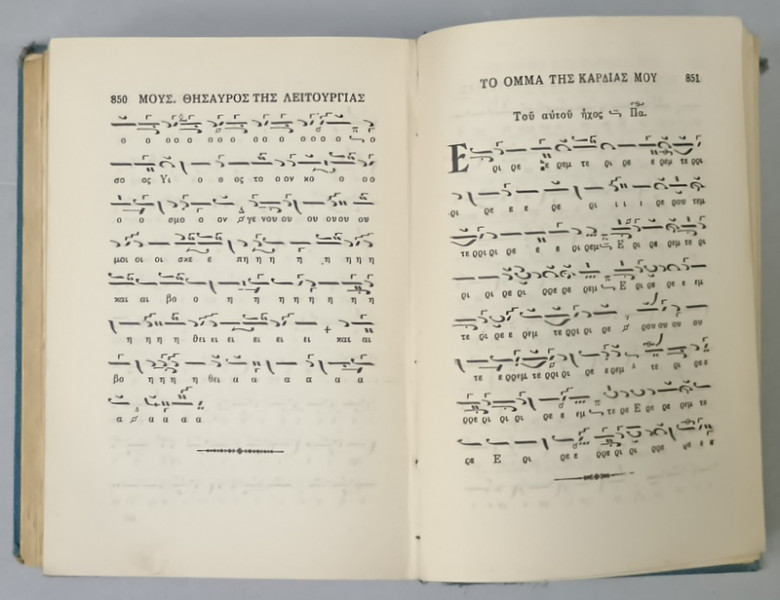 850 ΜΟΥΣ. ΘΗΣΑΥΡΟΣ ΤΗΣ ΛΕΙΤΟΥΡΓΙΑΣ
ο ο οο ο οο ο ο ο ο ο ο ο ο
σο ος Υι ο ο ος το ο ον κο ο ο ο
ο ο σμο ο ον γε νου ου ου ου ου ου
μοι οι οι σκε ε πη η η η η η η η
και αι βο ο η η η η η η η η
η η η η θει ει ει ει ει ει και αι
βο η η η η θει α α α α α α
α α α α α
ΤΟ ΟΜΜΑ ΤΗΣ ΚΑΡΔΙΑΣ ΜΟΥ 851
Τοῦ αὐτοῦ ἦχος Πα.
Ε ρι ρε ε ρεμ τε ρι ρε ε ρεμ τε ρρι
ρι ρε ε ε ρε ρι ι ι ι ρε ρου τεμ
τε ρρι ρι ρε ε ε ε ρι ρεμ Ε ρι ρε ρεμ τε ρι
ρι ρι ρε ρρε ρε ρεμ Ε ρι ρε ρε ε εμ
τε ρι ρε ε ρεμ τε ρρι ρι ρε ρου ου ου ου
τε ε ρρεμ τε ρρι ρι ρε ε ρεμ τε ρι ρε ε
ρρε ρι ρι ρι ρε ε εμ τε ρε Ε ρε ρε ρεμ τε
ρε Ε ρι ρε ε ρρε ρι ρι ρρι ρε ε ε